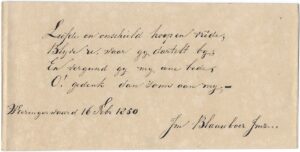 Liefde en onschuld hoop en vrede,
Blyve u waar gy dartelt by,
En vergund gy my eene bede,
O! gedenk dan soms aan my,—
Wieringerwaard 16 Febr 1850
Jm Blaauboer Jmz...